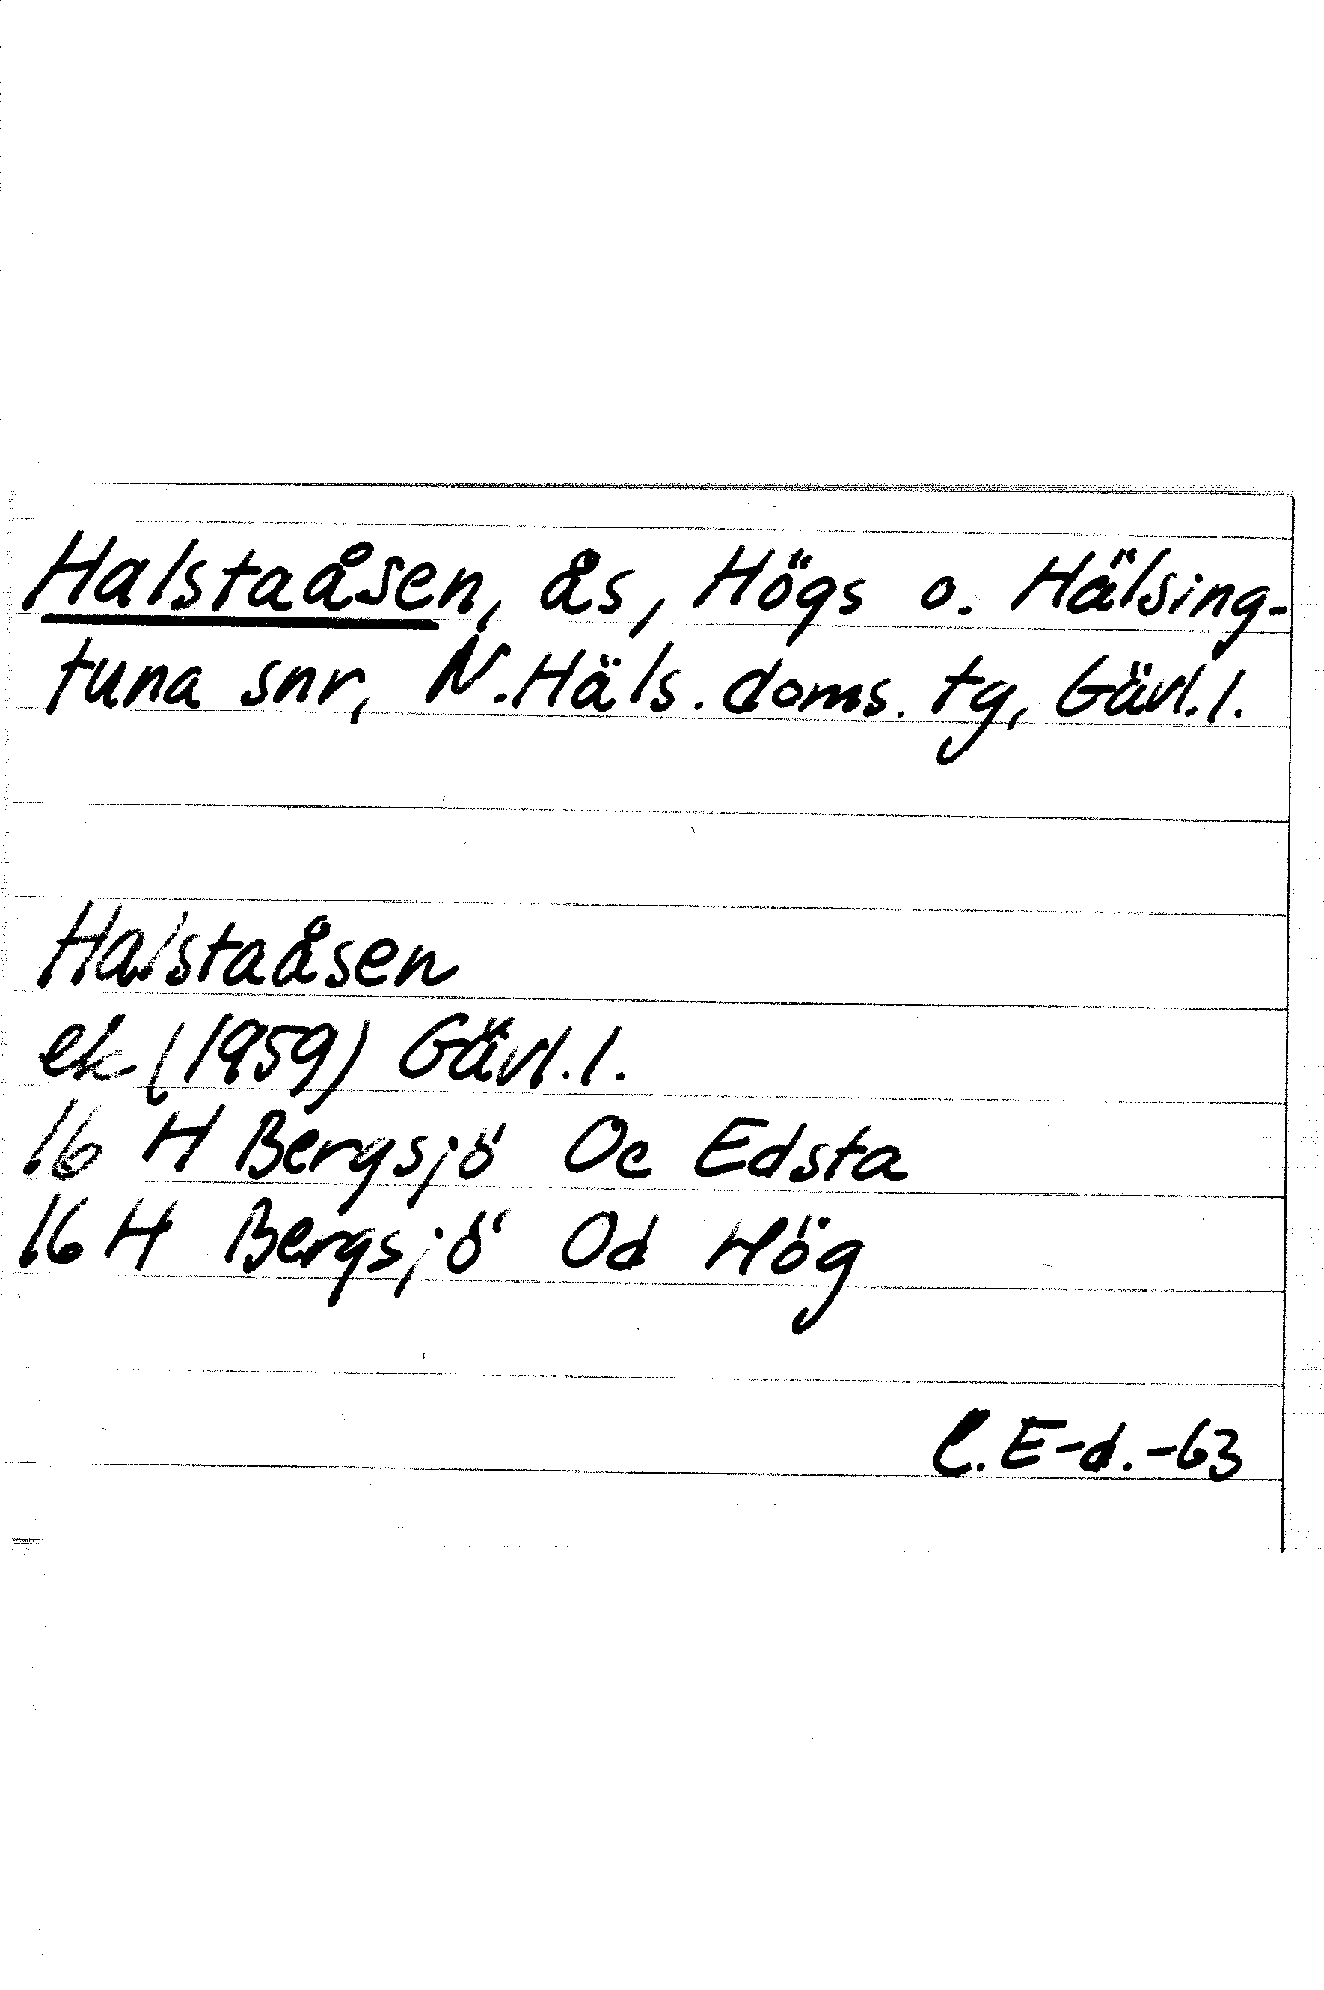 Halstaåsen, ås, Högs o. Hälsing-
tuna snr, N.Häls. doms. tg, Gävl.l.
Halstaåsen
ek (1959) Gävl.l.
16 H Bergsjö Oc Edsta
16 H Bergsjö Od Hög
C. E-d. -63